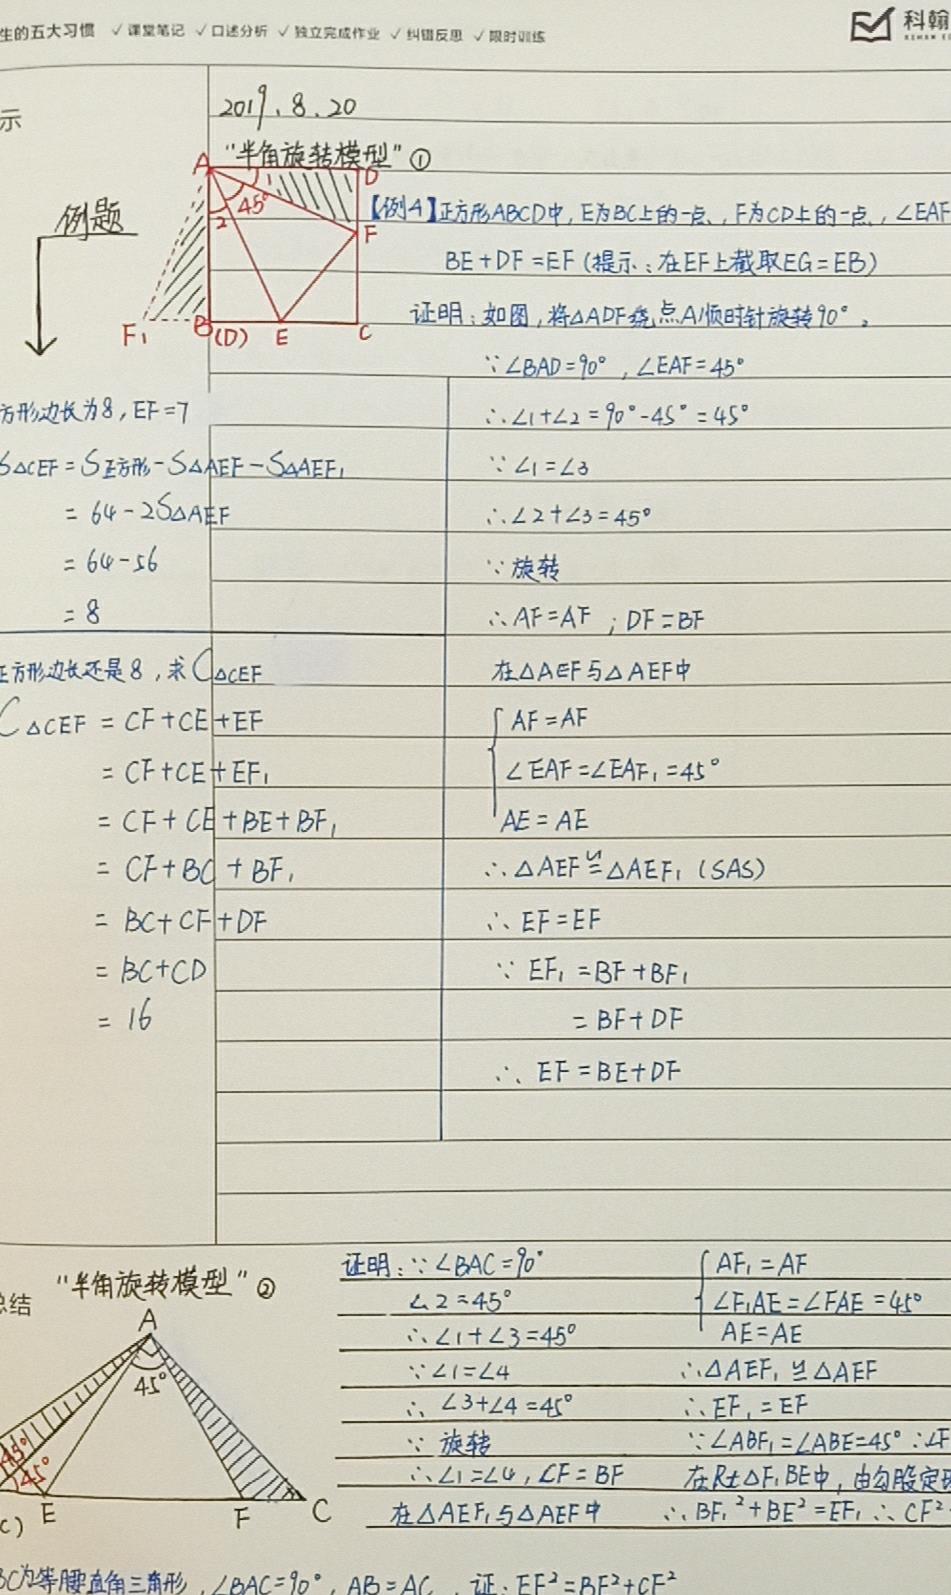 生的五大习惯 ✓课堂笔记 ✓口述分析 ✓独立完成作业 ✓纠错反思 ✓限时训练
科翰
示
2019.8.20
"半角旋转模型"①
例题
A
D
1
45°
2
F
F₁
B
(D)
E
C
【例4】正方形ABCD中,E为BC上的一点,F为CD上的一点,∠EAF
BE+DF=EF(提示:在EF上截取EG=EB)
证明:如图,将△ADF绕点A顺时针旋转90°,
∵∠BAD=90°,∠EAF=45°
∴∠1+∠2=90°-45°=45°
∵∠1=∠3
∴∠2+∠3=45°
∵旋转
∴AF=AF;DF=BF
在△AEF与△AEF中
AF=AF
∠EAF=∠EAF₁=45°
AE=AE
∴△AEF≌△AEF₁(SAS)
∴EF=EF
∵EF₁=BF+BF₁
=BF+DF
∴EF=BE+DF
方形边长为8,EF=7
S△CEF=S正方形-S△AEF-S△AEF₁
=64-2S△AEF
=64-56
=8
正方形边长还是8,求C△CEF
C△CEF=CF+CE+EF
=CF+CE+EF₁
=CF+CE+BE+BF₁
=CF+BC+BF₁
=BC+CF+DF
=BC+CD
=16
总结
"半角旋转模型"②
A
45°
45°
45°
C)
E
F
C
证明:∵∠BAC=90°
∠2=45°
∴∠1+∠3=45°
∵∠1=∠4
∴∠3+∠4=45°
∵旋转
∴∠1=∠4,CF=BF
在△AEF₁与△AEF中
AF₁=AF
∠F₁AE=∠FAE=45°
AE=AE
∴△AEF₁≌△AEF
∴EF₁=EF
∵∠ABF₁=∠ABE=45°∴∠F
在Rt△F₁BE中,由勾股定理
∴BF₁²+BE²=EF₁∴CF²
BC为等腰直角三角形,∠BAC=90°,AB=AC,证:EF²=BF²+CF²